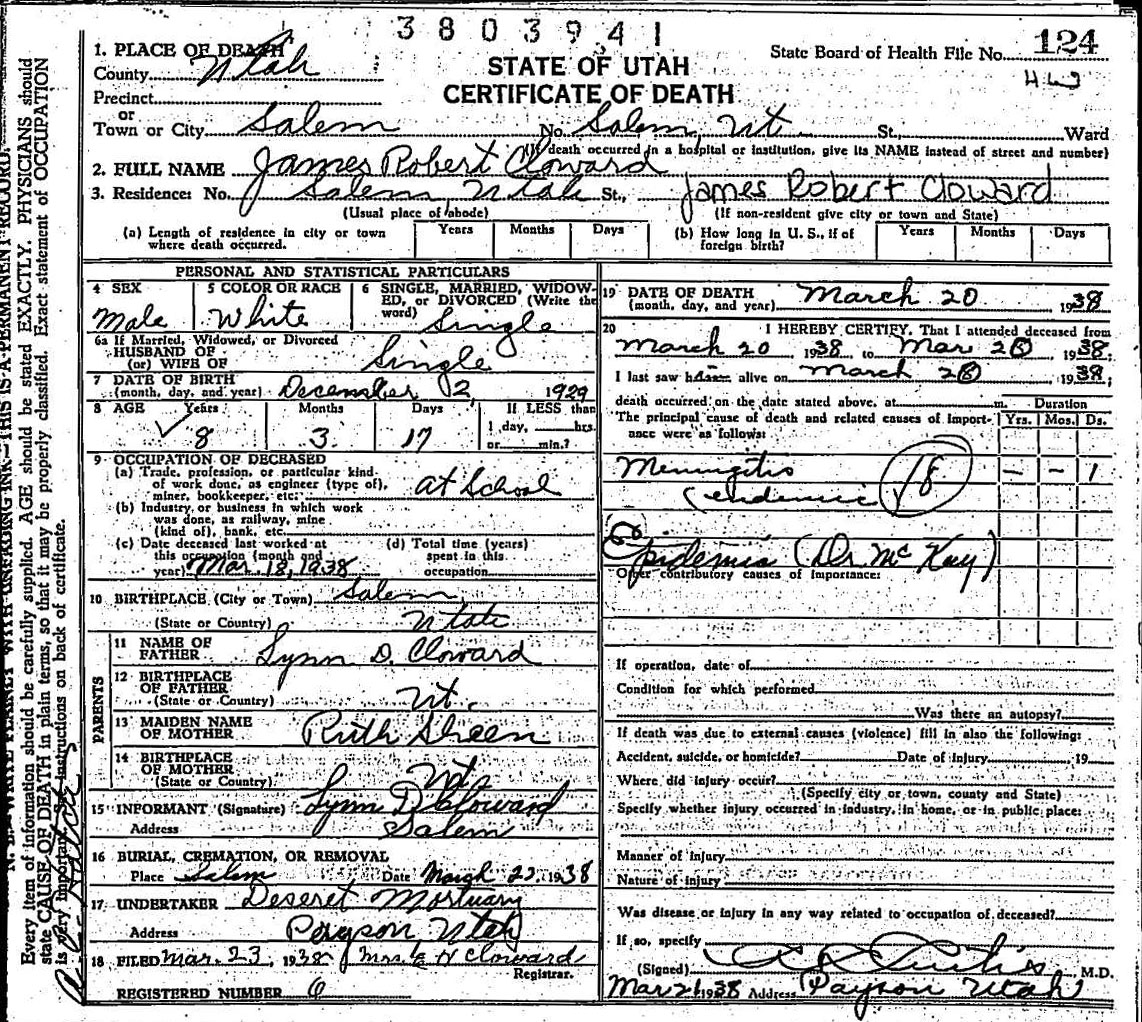 3803941
1. PLACE OF DEATH
County Utah
STATE OF UTAH
CERTIFICATE OF DEATH
State Board of Health File No. 124
Precinct
or
Town or City Salem No. Salem, Ut. St., Ward
(If death occurred in a hospital or institution, give its NAME instead of street and number)
2. FULL NAME James Robert Cloward
3. Residence: No. Salem Utah St., James Robert Cloward
(Usual place of abode) (If non-resident give city or town and State)
(a) Length of residence in city or town where death occurred. Years Months Days
(b) How long in U. S., if of foreign birth? Years Months Days
PERSONAL AND STATISTICAL PARTICULARS
4 SEX Male
5 COLOR OR RACE White
6 SINGLE, MARRIED, WIDOWED, or DIVORCED (Write the word) Single
6a If Married, Widowed, or Divorced
HUSBAND OF
(or) WIFE OF Single
7 DATE OF BIRTH
(month, day, and year) December 2, 1929
8 AGE Years 8 Months 3 Days 17 If LESS than
1 day, hrs.
or min.?
9 OCCUPATION OF DECEASED
(a) Trade, profession, or particular kind
of work done, as engineer (type of),
miner, bookkeeper, etc. at School
(b) Industry, or business in which work
was done, as railway, mine
(kind of), bank, etc.
(c) Date deceased last worked at
this occupation (month and
year) Mar. 18, 1938
(d) Total time (years)
spent in this
occupation
10 BIRTHPLACE (City or Town) Salem
(State or Country) Utah
PARENTS
11 NAME OF
FATHER Lynn D. Cloward
12 BIRTHPLACE
OF FATHER
(State or Country) Ut.
13 MAIDEN NAME
OF MOTHER Ruth Sheen
14 BIRTHPLACE
OF MOTHER
(State or Country) Ut
15 INFORMANT (Signature) Lynn D Cloward
Address Salem
16 BURIAL, CREMATION, OR REMOVAL
Place Salem Date March 22, 1938
17 UNDERTAKER Deseret Mortuary
Address Payson Utah
18 FILED Mar. 23, 1938 Mrs. E H Cloward
Registrar.
REGISTERED NUMBER 6
19 DATE OF DEATH
(month, day, and year) March 20 1938
20 I HEREBY CERTIFY, That I attended deceased from
March 20 1938 to Mar 20, 1938,
I last saw him alive on March 20, 1938,
death occurred on the date stated above, at m. Duration
The principal cause of death and related causes of importance were as follows: Yrs. Mos. Ds.
Meningitis 18 – – 1
(endemic
Epidemic (Dr. McKay)
Other contributory causes of importance:
If operation, date of
Condition for which performed
Was there an autopsy?
If death was due to external causes (violence) fill in also the following:
Accident, suicide, or homicide? Date of Injury 19
Where did injury occur?
(Specify city or town, county and State)
Specify whether injury occurred in industry, in home, or in public place:
Manner of injury
Nature of injury
Was disease or injury in any way related to occupation of deceased?
If so, specify
(Signed) Curtis M.D.
Mar 21 1938 Address Payson Utah
N. B.—WRITE PLAINLY WITH UNFADING INK—THIS IS A PERMANENT RECORD.
Every item of information should be carefully supplied. AGE should be stated EXACTLY. PHYSICIANS should
state CAUSE OF DEATH in plain terms, so that it may be properly classified. Exact statement of OCCUPATION
is very important. Instructions on back of certificate.